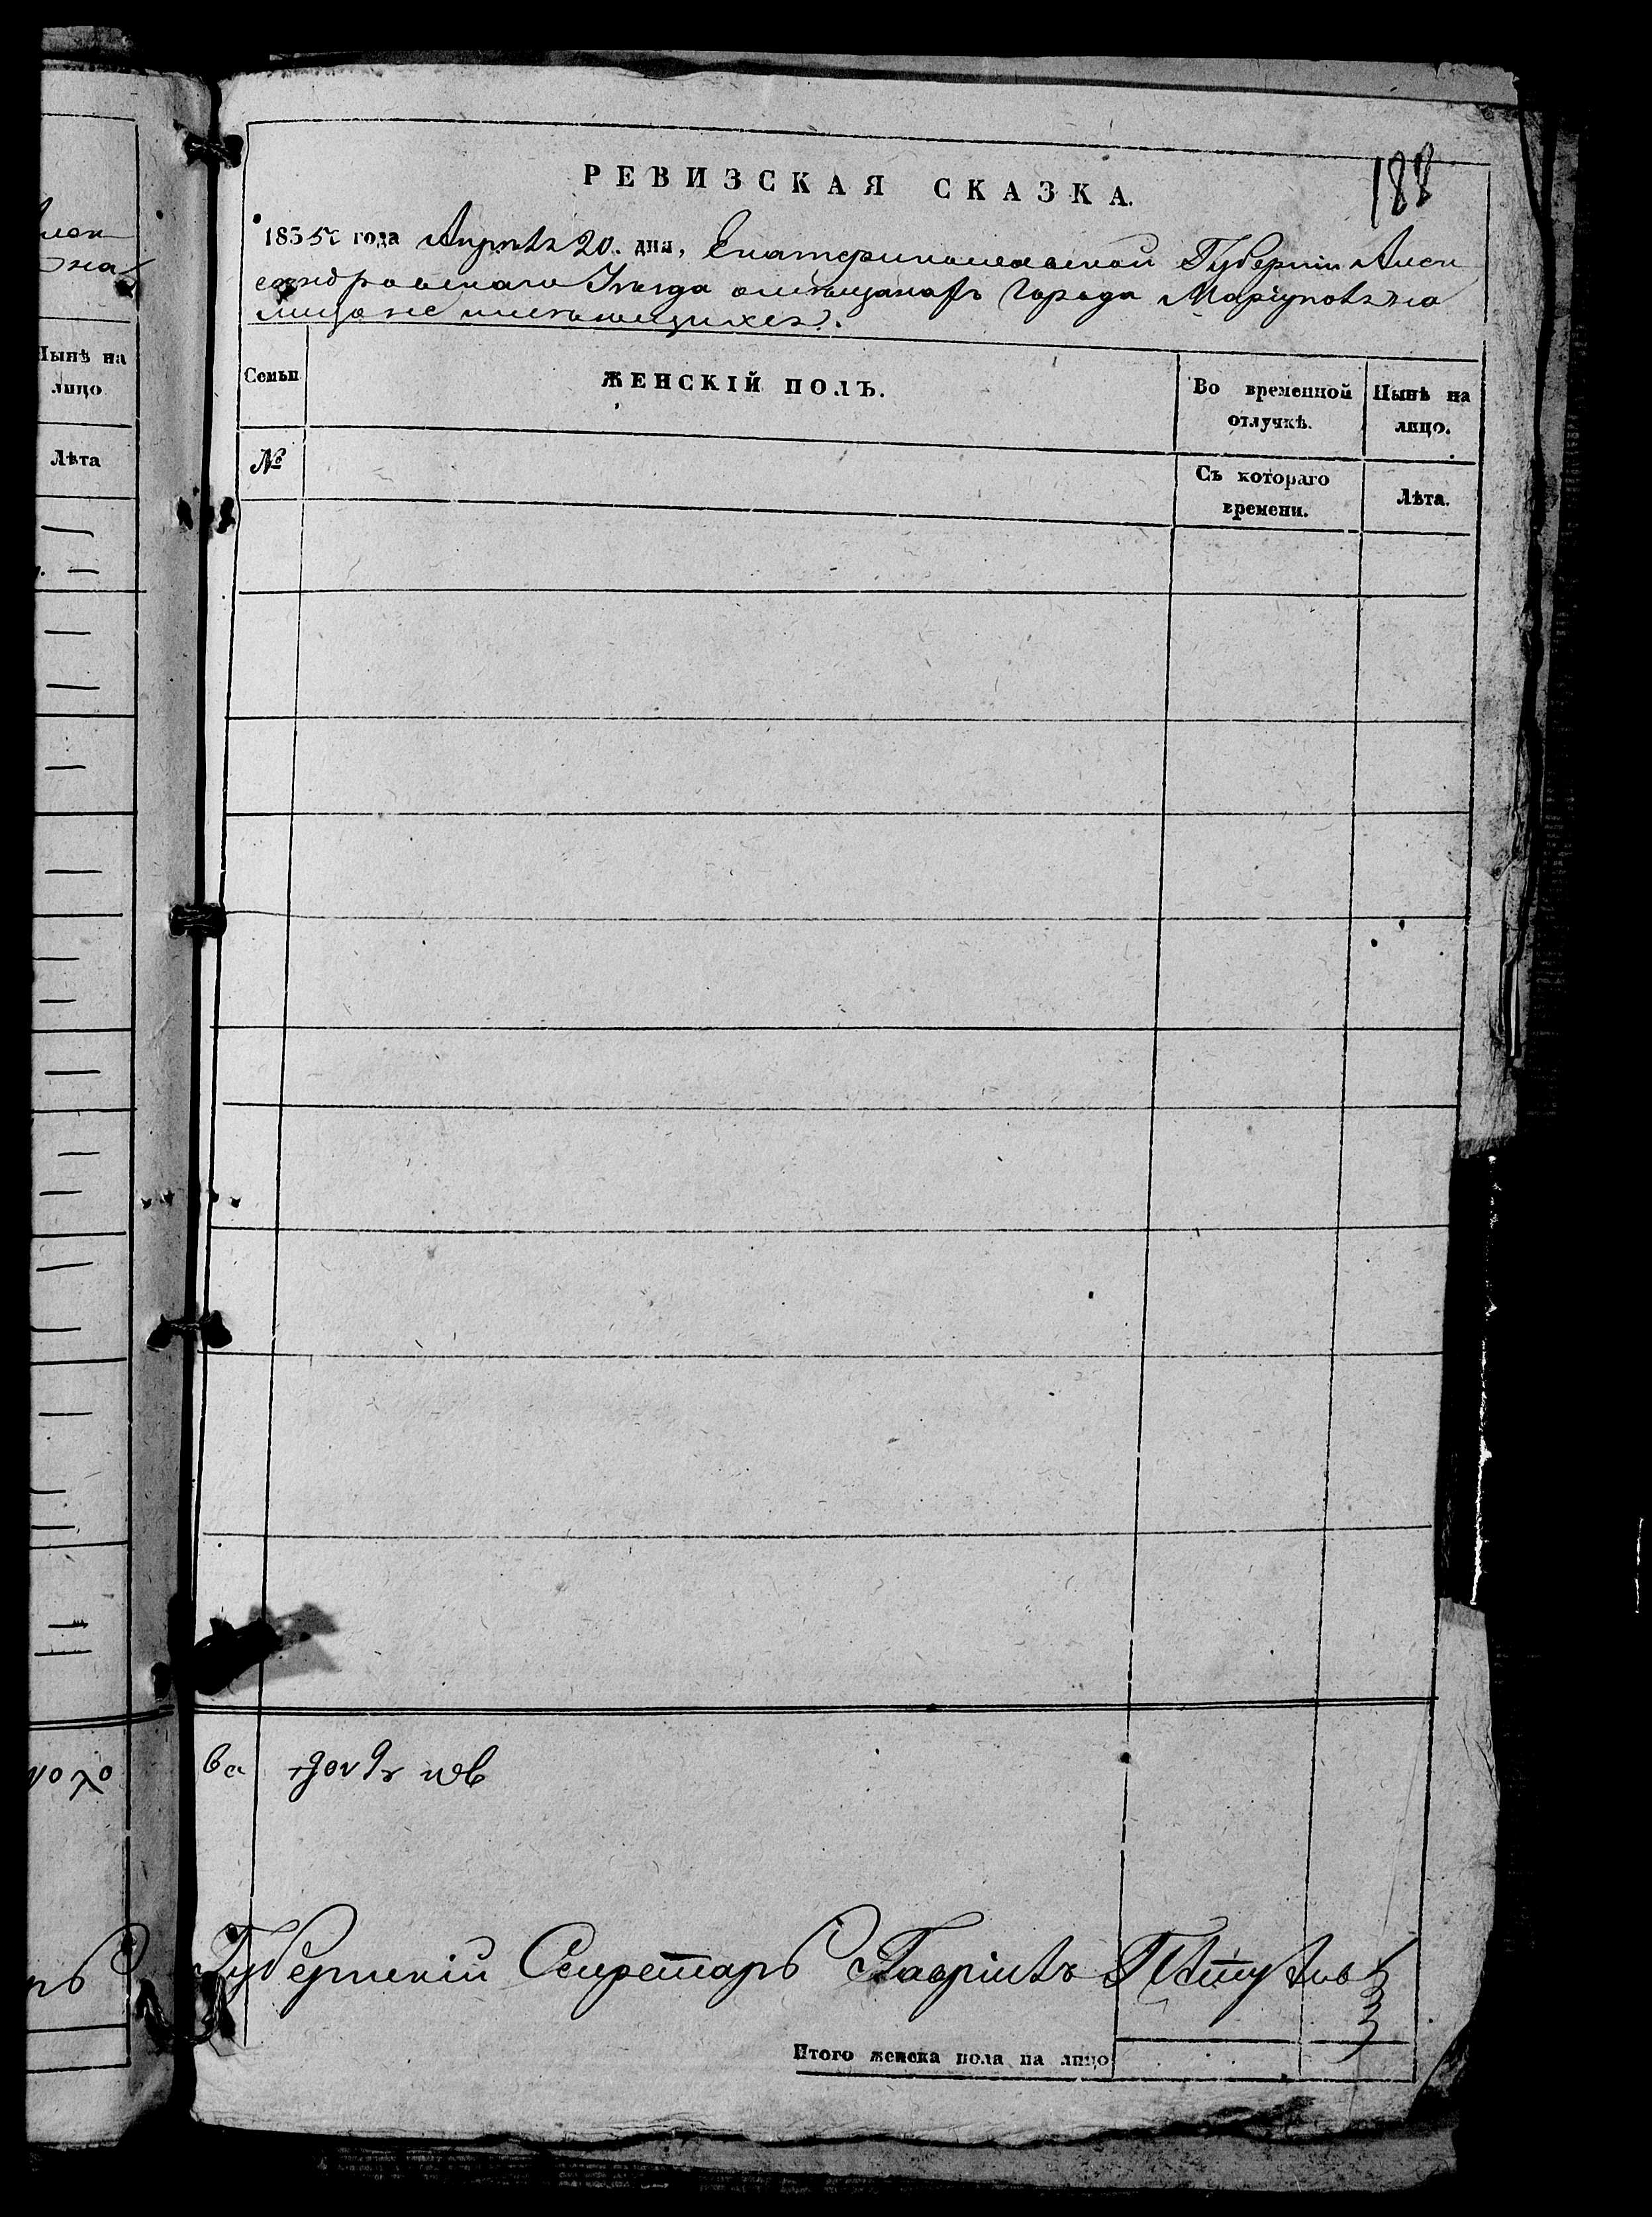 188
РЕВИЗСКАЯ СКАЗКА.
1835 года Апрѣля 20. дня, Екатеринославской Губерніи Алек
сандровскаго Уѣзда о мѣщанахъ города Маріуполя на
лицо не имѣющихся.
Семьи
ЖЕНСКІЙ ПОЛЪ.
Во временной
отлучкѣ.
Нынѣ на
лицо.
№
Съ котораго
времени.
Лѣта.
Нынѣ на
лицо
Лѣта
Губернскій Секретарь Гавріилъ
Итого женска пола на лицо